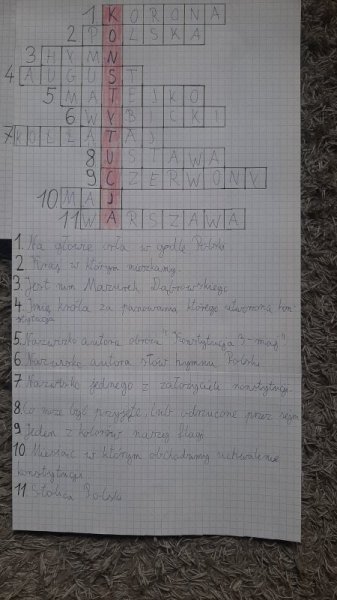 1 KORONA
2 POLSKA
3 HYMN
4 AUGUST
5 MATEJKO
6 WYBICKI
7 KOŁŁATAJ
8 USTAWA
9 CZERWONY
10 MAJ
11 WARSZAWA
1. Na głowie orła w godle Polski
2. Kraj w którym mieszkamy.
3. Jest nim Mazurek Dąbrowskiego
4. Imię króla za panowania którego utworzono kon
stytucja
5. Nazwisko autora obrazu "Konstytucja 3-maja"
6. Nazwisko autora słów hymnu Polski
7 Nazwisko jednego z założycieli konstytucji
8. Co może być przyjęte lub odrzucone przez sejm
9 Jeden z kolorów naszej flagi
10 Miesiąc w którym obchodzimy uchwalenie
konstytucji
11 Stolica Polski